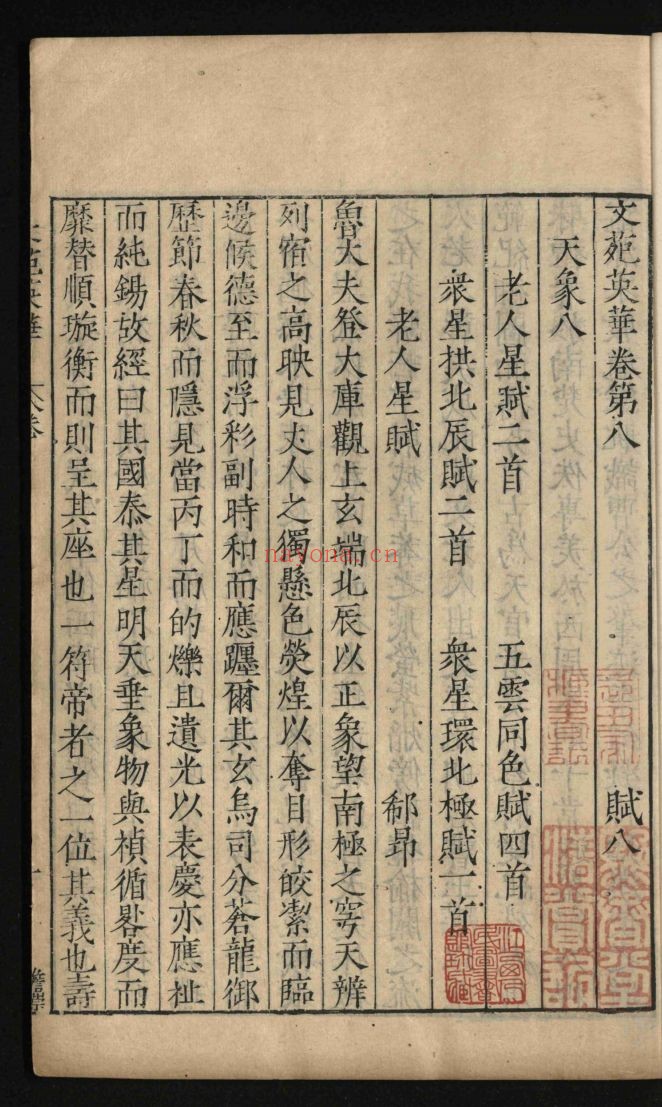 文苑英華卷第八　賦八
天象八
老人星賦二首　五雲同色賦四首
衆星拱北辰賦二首　衆星環北極賦一首
老人星賦　郗昂
魯大夫登大庫觀上玄端北辰以正象望南極之穹天辨
列宿之高映見丈人之獨懸色熒煌以奪目形皎潔而臨
邊候德至而浮彩副時和而應躔爾其玄鳥司分蒼龍御
歷節春秋而隱見當丙丁而的爍且遺光以表慶亦應祉
而純錫故經曰其國泰其星明天垂象物與禎循晷度而
靡替順璇衡而則呈其座也一符帝者之一位其義也壽
nayona.cn